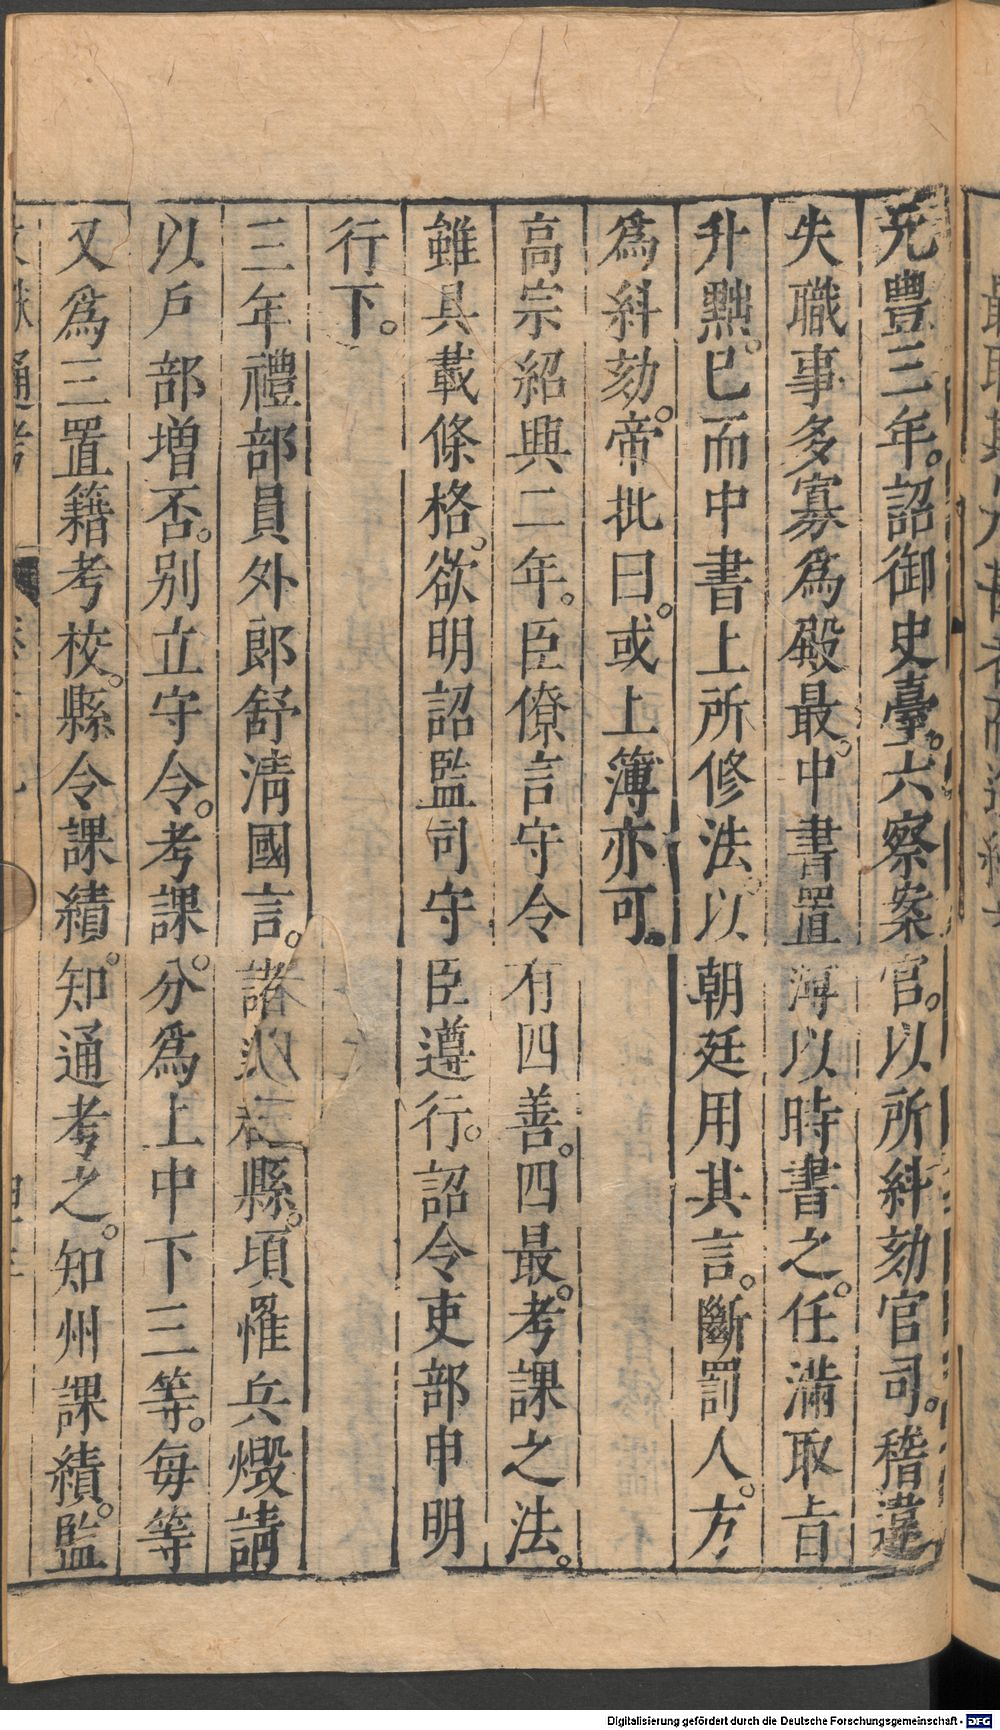 元豐三年。詔御史臺。六察案官。以所糾劾官司。稽違
失職事多寡爲殿最。中書置簿以時書之。任滿取旨
升黜。已而中書上所修法。以朝廷用其言。斷罰人。方
爲糾劾。帝批曰。或上簿亦可。
高宗紹興二年。臣僚言守令有四善。四最。考課之法。
雖具載條格。欲明詔監司守臣遵行。詔令吏部申明
行下。
三年禮部員外郎舒淸國言。諸州縣。頃罹兵燬請
以戶部增否。別立守令。考課。分爲上中下三等。每等
又爲三置籍考校。縣令課績。知通考之。知州課績。監
通考
Digitalisierung gefördert durch die Deutsche Forschungsgemeinschaft - DFG